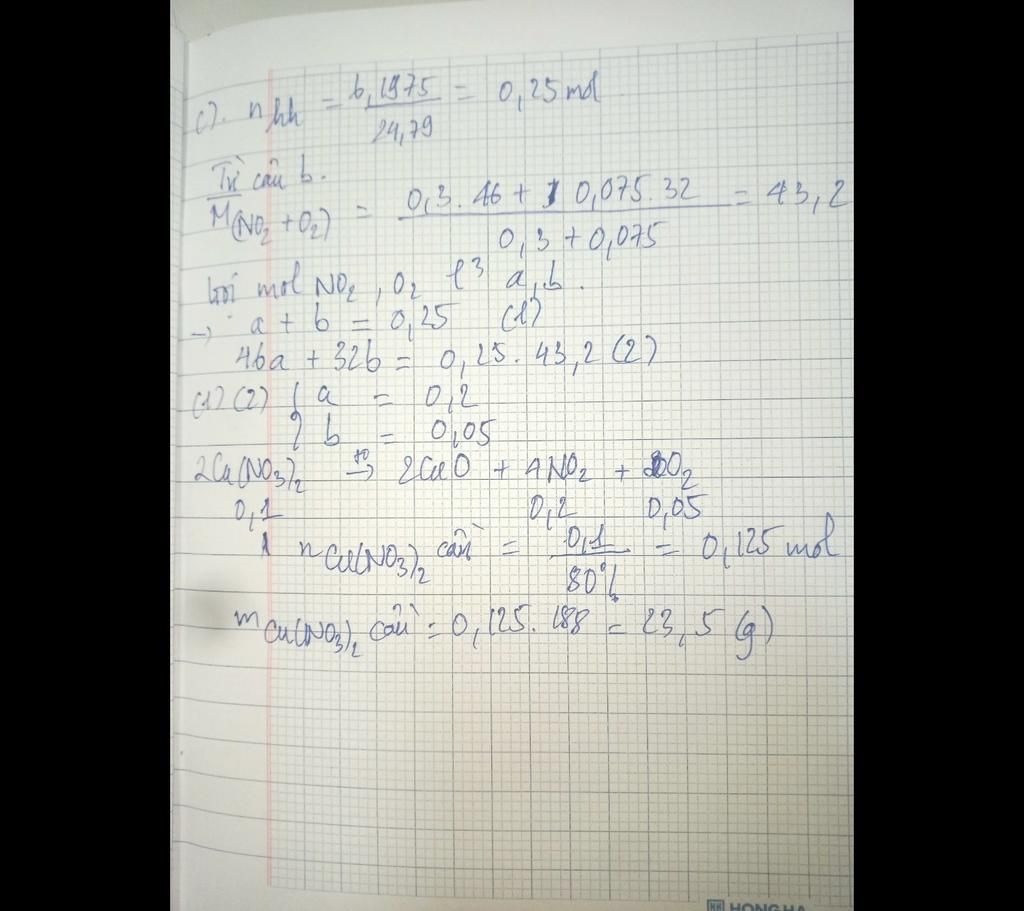 c). n hh = 6,1975 / 24,79 = 0,25 mol
Từ câu b.
M(NO2 + O2) = 0,3 . 46 + 0,075 . 32 / 0,3 + 0,075 = 43,2
Gọi mol NO2, O2 l³ a, b.
→ a + b = 0,25 (1)
46a + 32b = 0,25 . 43,2 (2)
(1) (2) { a = 0,2
b = 0,05
2Cu(NO3)2 t° → 2CuO + 4NO2 + O2
0,1 0,2 0,05
n Cu(NO3)2 cần = 0,1 / 80% = 0,125 mol
m Cu(NO3)2 cần = 0,125 . 188 = 23,5 (g)
HONG HA